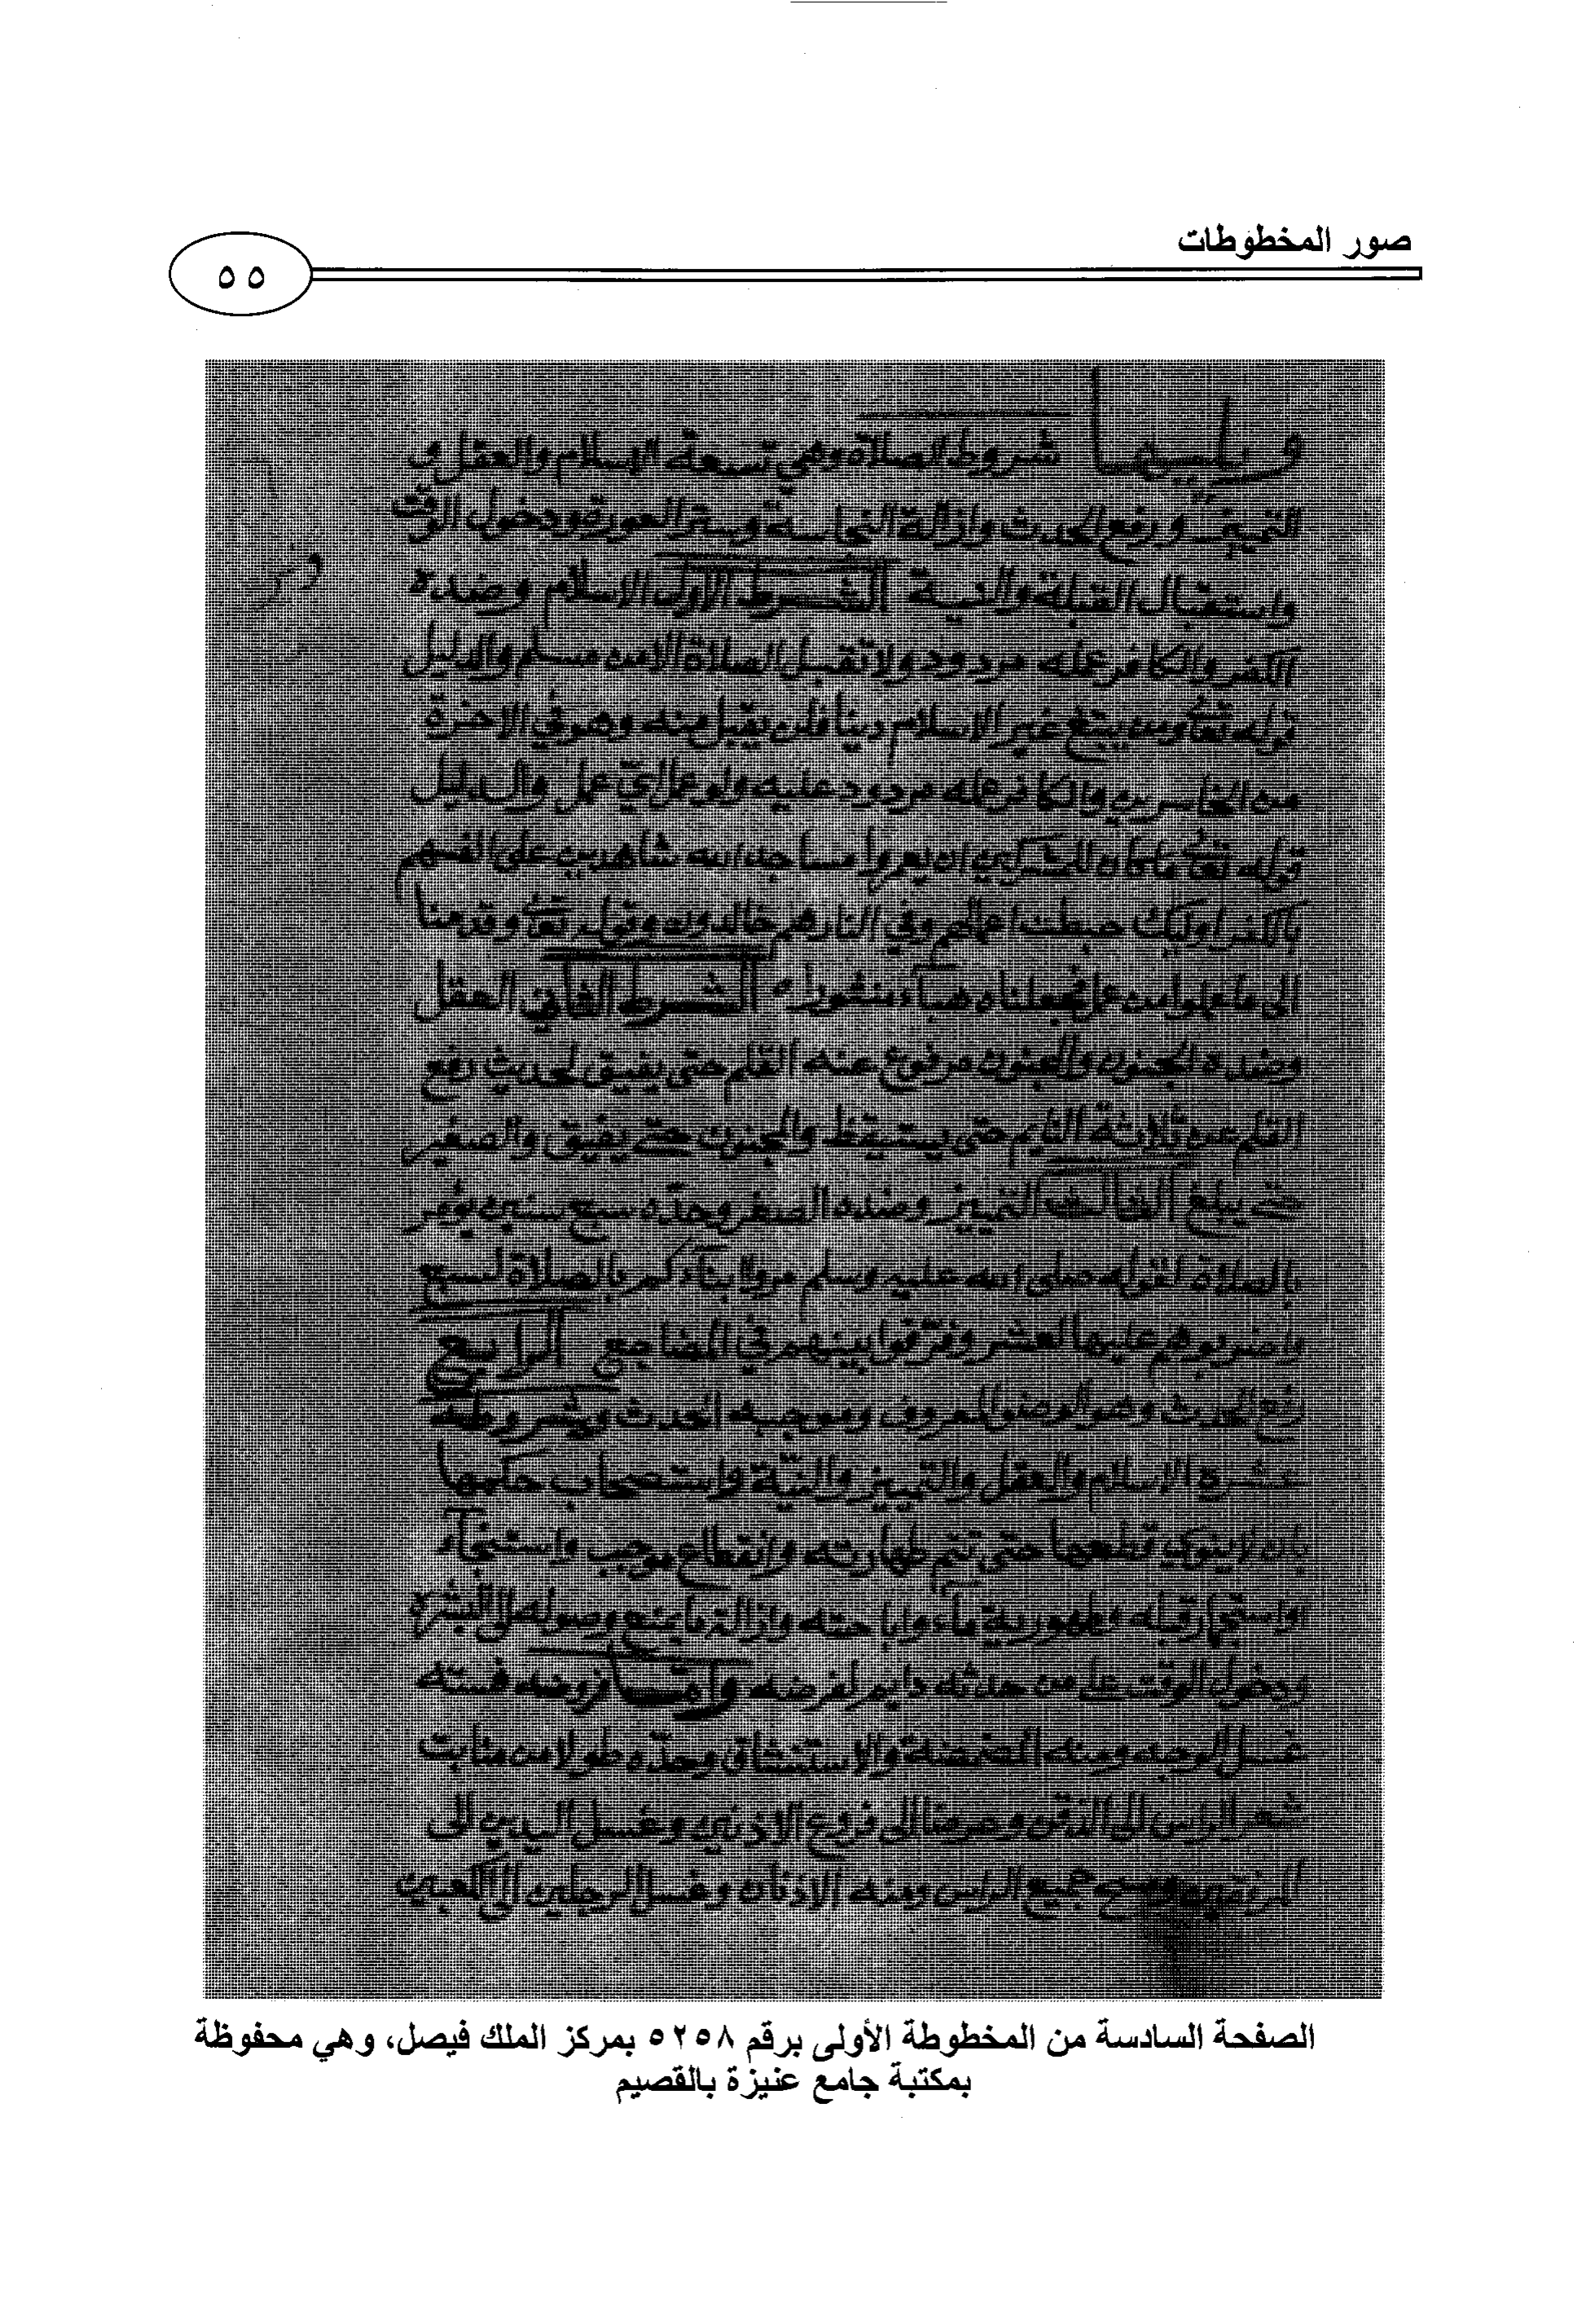 صور المخطوطات
٥٥
ويليها شروط الصلاة وهي تسعة الاسلام والعقل و
التمييز ورفع الحدث وازالة النجاسة وستر العورة ودخول الوقت
واستقبال القبلة والنية الشرط الاول الاسلام وضده
الكفر والكافر عمله مردود ولا تقبل الصلاة الا من مسلم والدليل
قوله تعا ومن يبتغ غير الاسلام دينا فلن يقبل منه وهو في الاخرة
من الخاسرين والكافر عمله مردود عليه ولو عمل اي عمل والدليل
قوله تعا ما كان للمشركين ان يعمروا مساجد الله شاهدين على انفسهم
بالكفر اوليك حبطت اعمالهم وفي النار هم خالدون وقوله تعا وقدمنا
الى ما عملوا من عمل فجعلناه هباء منثورا الشرط الثاني العقل
وضده الجنون والمجنون مرفوع عنه القلم حتى يفيق لحديث رفع
القلم عن ثلاثة النايم حتى يستيقظ والمجنون حتى يفيق والصغير
حتى يبلغ الثالث التمييز وضده الصغر وحده سبع سنين يؤمر
بالصلاة لقوله صلى الله عليه وسلم مروا ابناءكم بالصلاة لسبع
واضربوهم عليها لعشر وفرقوا بينهم في المضاجع الرابع
رفع الحدث وهو الوضوء المعروف وموجبه الحدث وشروطه
عشرة الاسلام والعقل والتمييز والنية واستصحاب حكمها
بان لا ينوي قطعها حتى تتم طهارته وانقطاع موجب واستنجاء
او استجمار قبله وطهورية ماء واباحته وازالة ما يمنع وصوله الى البشرة
ودخول الوقت على من حدثه دايم لفرضه واما فروضه فستة
غسل الوجه ومنه المضمضة والاستنشاق وحده طولا من منابت
شعر الراس الى الذقن وعرضا الى فروع الاذنين وغسل اليدين الى
المرفقين ومسح جميع الراس ومنه الاذنان وغسل الرجلين الى الكعبين
الصفحة السادسة من المخطوطة الأولى برقم ٥٢٥٨ بمركز الملك فيصل، وهي محفوظة
بمكتبة جامع عنيزة بالقصيم